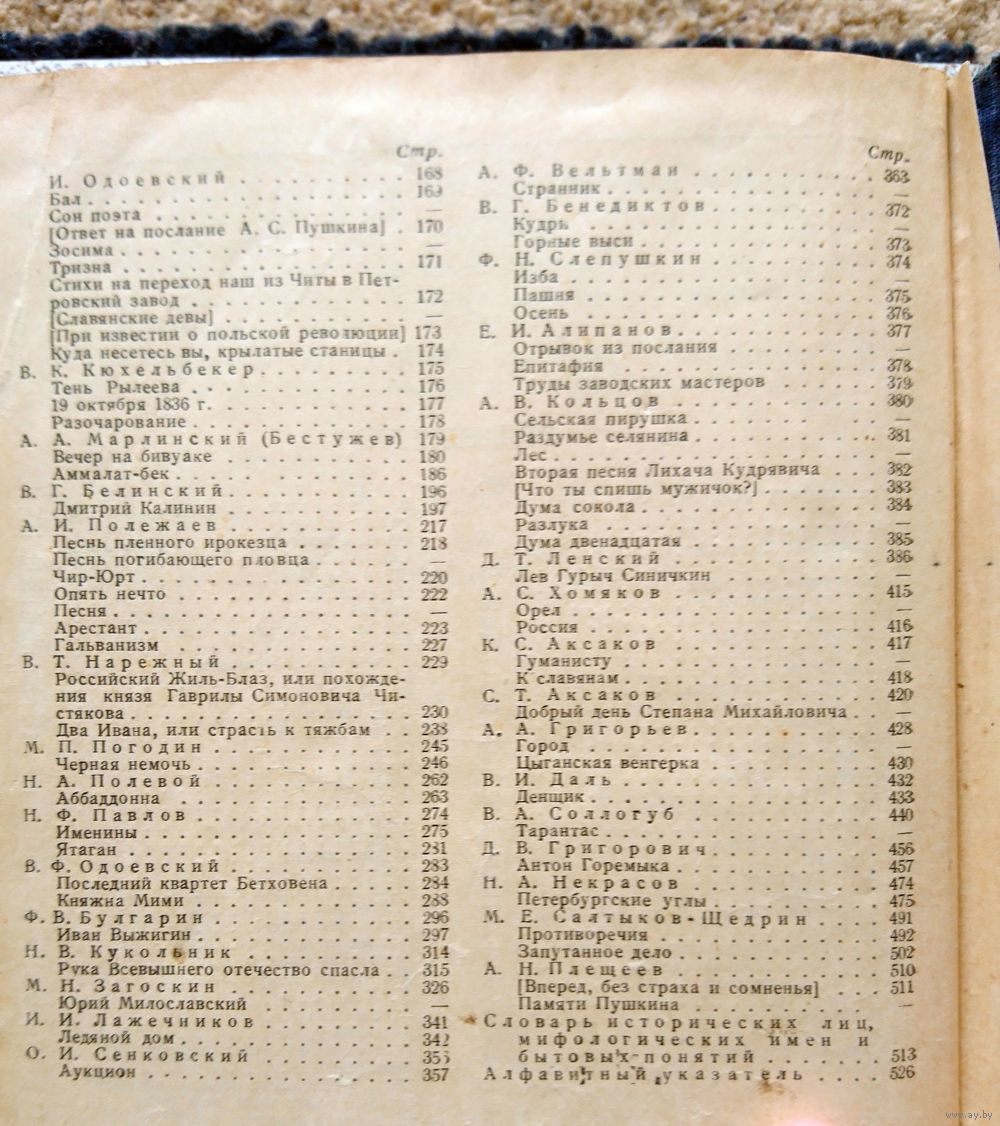 Стр.
И. Одоевский . . . . . . . . . . 168
Бал . . . . . . . . . . 169
Сон поэта . . . . . . . . . . —
[Ответ на послание А. С. Пушкина] . 170
Зосима . . . . . . . . . . —
Тризна . . . . . . . . . . 171
Стихи на переход наш из Читы в Пет-
ровский завод . . . . . . . . . . 172
[Славянские девы] . . . . . . . . . . —
[При известии о польской революции] 173
Куда несетесь вы, крылатые станицы . 174
В. К. Кюхельбекер . . . . . . . . . . 175
Тень Рылеева . . . . . . . . . . 176
19 октября 1836 г. . . . . . . . . . . 177
Разочарование . . . . . . . . . . 178
А. А. Марлинский (Бестужев) 179
Вечер на бивуаке . . . . . . . . . . 180
Аммалат-бек . . . . . . . . . . 186
В. Г. Белинский . . . . . . . . . . 196
Дмитрий Калинин . . . . . . . . . . 197
А. И. Полежаев . . . . . . . . . . 217
Песнь пленного ирокезца . . . . . . . 218
Песнь погибающего пловца . . . . . . —
Чир-Юрт . . . . . . . . . . 220
Опять нечто . . . . . . . . . . 222
Песня . . . . . . . . . . —
Арестант . . . . . . . . . . 223
Гальванизм . . . . . . . . . . 227
В. Т. Нарежный . . . . . . . . . . 229
Российский Жиль-Блаз, или похожде-
ния князя Гаврилы Симоновича Чи-
стякова . . . . . . . . . . 230
Два Ивана, или страсть к тяжбам . . 238
М. П. Погодин . . . . . . . . . . 245
Черная немочь . . . . . . . . . . 246
Н. А. Полевой . . . . . . . . . . 262
Аббаддонна . . . . . . . . . . 263
Н. Ф. Павлов . . . . . . . . . . 274
Именины . . . . . . . . . . 275
Ятаган . . . . . . . . . . 281
В. Ф. Одоевский . . . . . . . . . . 283
Последний квартет Бетховена . . . . . 284
Княжна Мими . . . . . . . . . . 288
Ф. В. Булгарин . . . . . . . . . . 296
Иван Выжигин . . . . . . . . . . 297
Н. В. Кукольник . . . . . . . . . . 314
Рука Всевышнего отечество спасла . . 315
М. Н. Загоскин . . . . . . . . . . 326
Юрий Милославский . . . . . . . . . . —
И. И. Лажечников . . . . . . . . . . 341
Ледяной дом . . . . . . . . . . 342
О. И. Сенковский . . . . . . . . . .
Аукцион . . . . . . . . . . 357
Стр.
А. Ф. Вельтман . . . . . . . . . . 363
Странник . . . . . . . . . . —
В. Г. Бенедиктов . . . . . . . . . . 372
Кудри . . . . . . . . . . —
Горные выси . . . . . . . . . . 373
Ф. Н. Слепушкин . . . . . . . . . . 374
Изба . . . . . . . . . . —
Пашня . . . . . . . . . . 375
Осень . . . . . . . . . . 376
Е. И. Алипанов . . . . . . . . . . 377
Отрывок из послания . . . . . . . . —
Епитафия . . . . . . . . . . 378
Труды заводских мастеров . . . . . . 379
А. В. Кольцов . . . . . . . . . . 380
Сельская пирушка . . . . . . . . . . —
Раздумье селянина . . . . . . . . . . 381
Лес . . . . . . . . . . —
Вторая песня Лихача Кудрявича . . . 382
[Что ты спишь мужичок?] . . . . . . . 383
Дума сокола . . . . . . . . . . 384
Разлука . . . . . . . . . . —
Дума двенадцатая . . . . . . . . . . 385
Д. Т. Ленский . . . . . . . . . . 386
Лев Гурыч Синичкин . . . . . . . . . —
А. С. Хомяков . . . . . . . . . . 415
Орел . . . . . . . . . . —
Россия . . . . . . . . . . 416
К. С. Аксаков . . . . . . . . . . 417
Гуманисту . . . . . . . . . . —
К славянам . . . . . . . . . . 418
С. Т. Аксаков . . . . . . . . . . 420
Добрый день Степана Михайловича . . —
А. А. Григорьев . . . . . . . . . . 428
Город . . . . . . . . . . —
Цыганская венгерка . . . . . . . . . 430
В. И. Даль . . . . . . . . . . 432
Денщик . . . . . . . . . . 433
В. А. Соллогуб . . . . . . . . . . 440
Тарантас . . . . . . . . . . —
Д. В. Григорович . . . . . . . . . . 456
Антон Горемыка . . . . . . . . . . 457
Н. А. Некрасов . . . . . . . . . . 474
Петербургские углы . . . . . . . . . 475
М. Е. Салтыков-Щедрин . . . . 491
Противоречия . . . . . . . . . . 492
Запутанное дело . . . . . . . . . . 502
А. Н. Плещеев . . . . . . . . . . 510
[Вперед, без страха и сомненья] . . . 511
Памяти Пушкина . . . . . . . . . . —
Словарь исторических лиц,
мифологических имен и
бытовых понятий . . . . . . . 513
Алфавитный указатель . . . . 526
www.ay.by